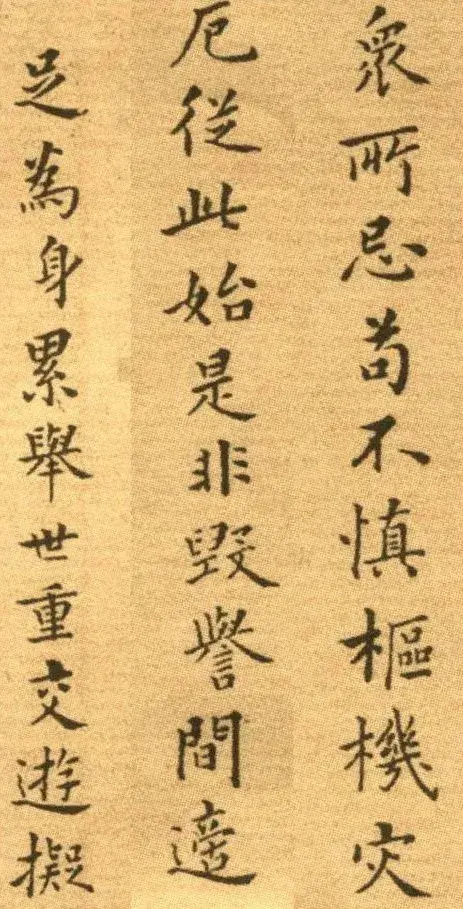 衆所忌苟不慎樞機灾
厄從此始是非毀譽間
適足為身累舉世重交遊擬